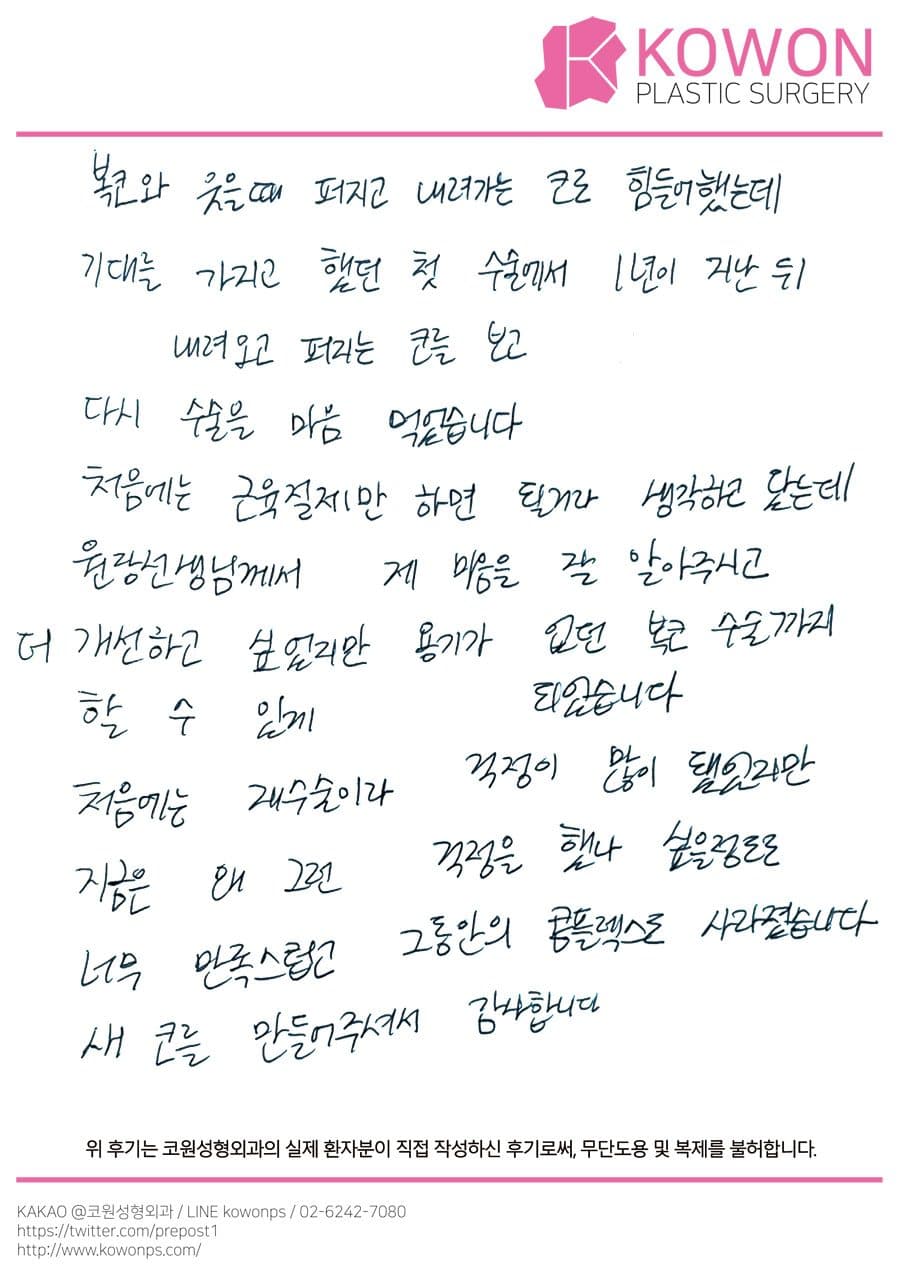 KOWON
PLASTIC SURGERY
복코와 웃을때 퍼지고 내려가는 코로 힘들어했는데
기대를 가지고 했던 첫 수술에서 1년이 지난 뒤
내려오고 퍼지는 코를 보고
다시 수술을 마음 먹었습니다
처음에는 근육절제만 하면 될거라 생각하고 왔는데
원장선생님께서 제 마음을 잘 알아주시고
더 개선하고 싶었지만 용기가 없던 복코 수술까지
할 수 있게 되었습니다
처음에는 재수술이라 걱정이 많이 됐었지만
지금은 왜 그런 걱정을 했나 싶을정도로
너무 만족스럽고 그동안의 콤플렉스로 사라졌습니다
새 코를 만들어주셔서 감사합니다
위 후기는 코원성형외과의 실제 환자분이 직접 작성하신 후기로써, 무단도용 및 복제를 불허합니다.
KAKAO @코원성형외과 / LINE kowonps / 02-6242-7080
https://twitter.com/prepost1
http://www.kowonps.com/